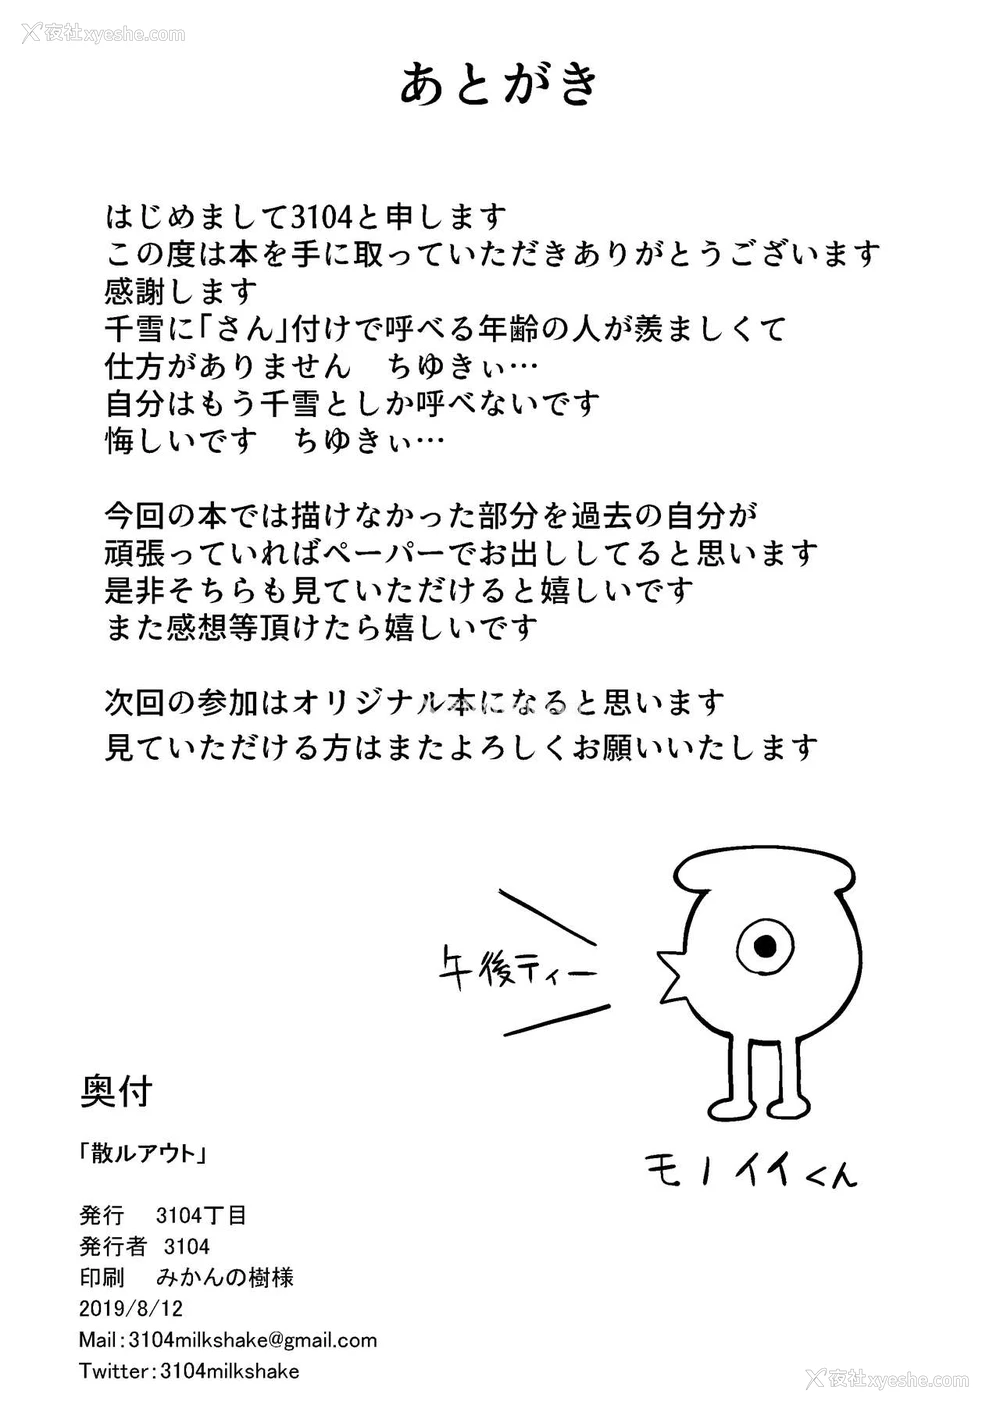 夜社xyeshe.com
あとがき
はじめまして3104と申します
この度は本を手に取っていただきありがとうございます
感謝します
千雪に「さん」付けで呼べる年齢の人が羨ましくて
仕方がありません　ちゆきぃ…
自分はもう千雪としか呼べないです
悔しいです　ちゆきぃ…
今回の本では描けなかった部分を過去の自分が
頑張っていればペーパーでお出ししてると思います
是非そちらも見ていただけると嬉しいです
また感想等頂けたら嬉しいです
次回の参加はオリジナル本になると思います
見ていただける方はまたよろしくお願いいたします
午後ティー
モノイイくん
奥付
「散ルアウト」
発行　3104丁目
発行者　3104
印刷　みかんの樹様
2019/8/12
Mail：3104milkshake@gmail.com
Twitter：3104milkshake
夜社xyeshe.com